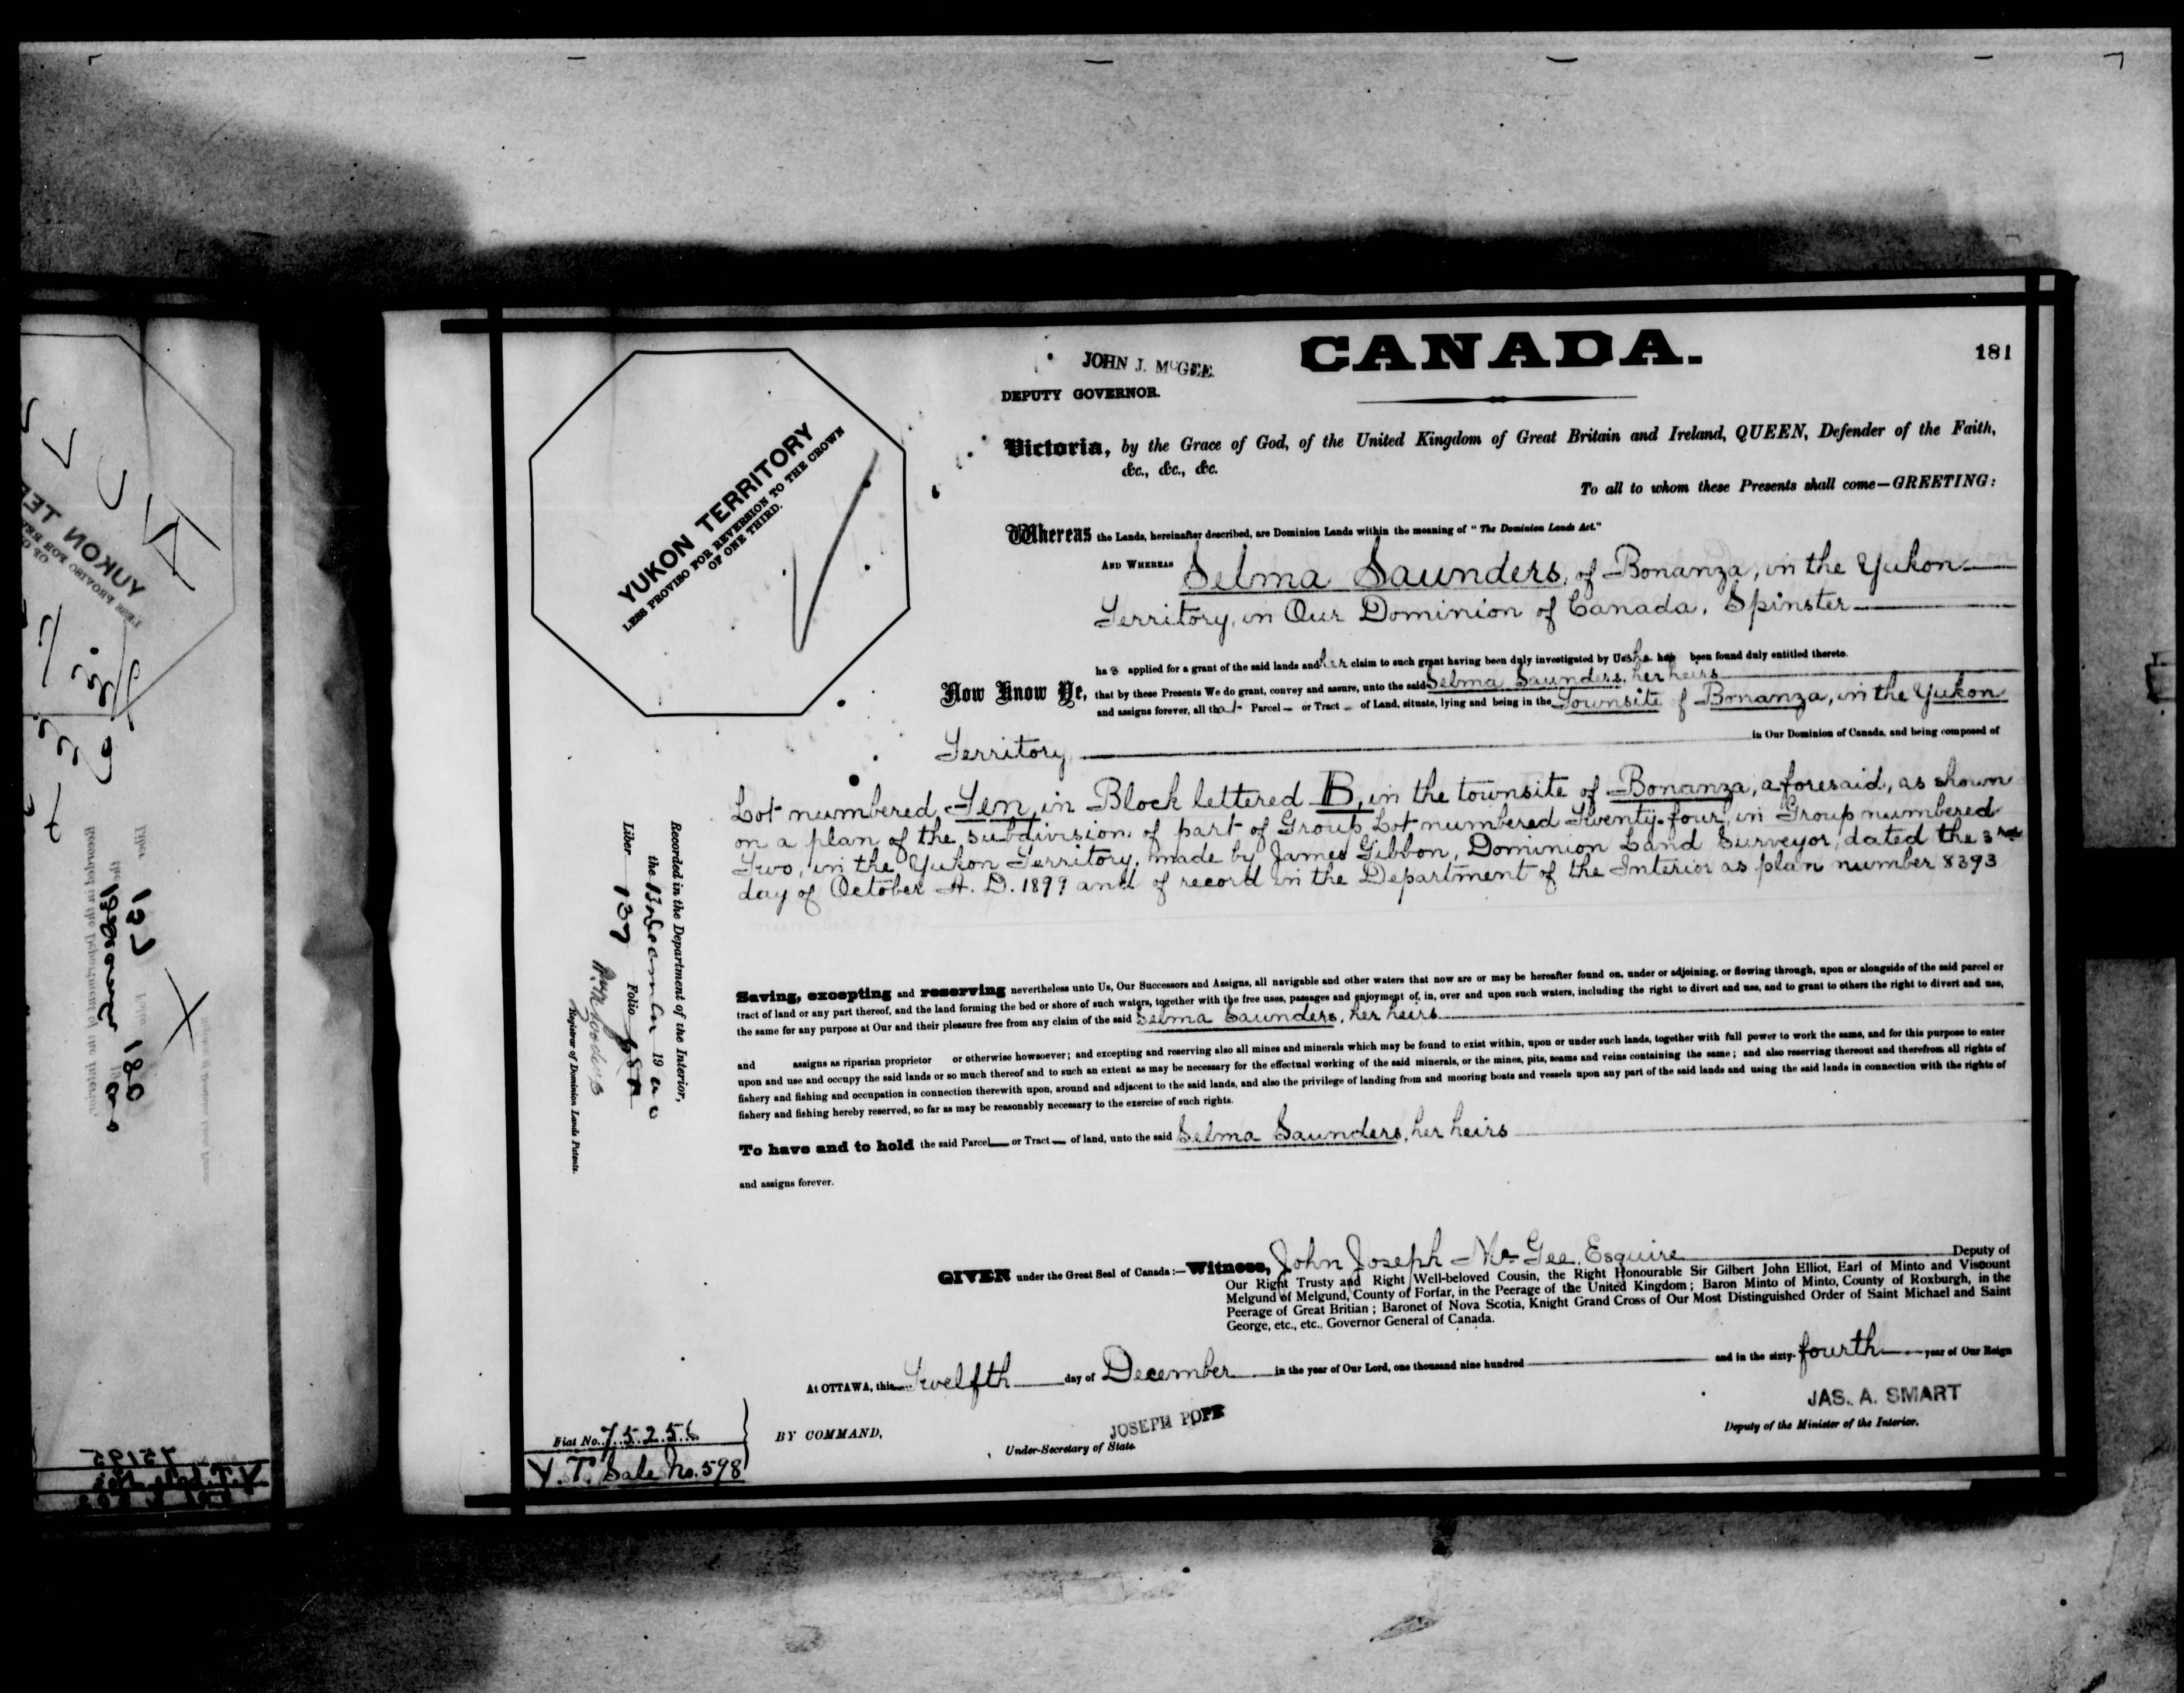 CANADA.
181
JOHN J. McGEE.
DEPUTY GOVERNOR.
YUKON TERRITORY
LESS PROVISO FOR REVERSION TO THE CROWN
OF ONE THIRD.
Victoria, by the Grace of God, of the United Kingdom of Great Britain and Ireland, QUEEN, Defender of the Faith,
&c., &c., &c.
To all to whom these Presents shall come—GREETING:
Whereas the Lands, hereinafter described, are Dominion Lands within the meaning of "The Dominion Lands Act."
AND WHEREAS Selma Saunders, of Bonanza, in the Yukon
Territory, in Our Dominion of Canada, Spinster
has applied for a grant of the said lands and her claim to such grant having been duly investigated by Us she has been found duly entitled thereto.
Now Know Ye, that by these Presents We do grant, convey and assure, unto the said Selma Saunders, her heirs
and assigns forever, all that Parcel — or Tract — of Land, situate, lying and being in the Townsite of Bonanza, in the Yukon
Territory in Our Dominion of Canada, and being composed of
Lot numbered Ten, in Block lettered B, in the townsite of Bonanza, aforesaid, as shown
on a plan of the subdivision of part of Group Lot numbered Twenty-four, in Group numbered
Two, in the Yukon Territory, made by James Gibbon, Dominion Land Surveyor, dated the 3rd
day of October A. D. 1899 and of record in the Department of the Interior as plan number 8393
Saving, excepting and reserving nevertheless unto Us, Our Successors and Assigns, all navigable and other waters that now are or may be hereafter found on, under or adjoining, or flowing through, upon or alongside of the said parcel or
tract of land or any part thereof, and the land forming the bed or shore of such waters, together with the free uses, passages and enjoyment of, in, over and upon such waters, including the right to divert and use, and to grant to others the right to divert and use,
the same for any purpose at Our and their pleasure free from any claim of the said Selma Saunders, her heirs
and assigns as riparian proprietor or otherwise howsoever; and excepting and reserving also all mines and minerals which may be found to exist within, upon or under such lands, together with full power to work the same, and for this purpose to enter
upon and use and occupy the said lands or so much thereof and to such an extent as may be necessary for the effectual working of the said minerals, or the mines, pits, seams and veins containing the same; and also reserving thereout and therefrom all rights of
fishery and fishing and occupation in connection therewith upon, around and adjacent to the said lands, and also the privilege of landing from and mooring boats and vessels upon any part of the said lands and using the said lands in connection with the rights of
fishery and fishing hereby reserved, so far as may be reasonably necessary to the exercise of such rights.
To have and to hold the said Parcel — or Tract — of land, unto the said Selma Saunders, her heirs
and assigns forever.
GIVEN under the Great Seal of Canada:—Witness, John Joseph McGee, Esquire Deputy of
Our Right Trusty and Right Well-beloved Cousin, the Right Honourable Sir Gilbert John Elliot, Earl of Minto and Viscount
Melgund of Melgund, County of Forfar, in the Peerage of the United Kingdom; Baron Minto of Minto, County of Roxburgh, in the
Peerage of Great Britian; Baronet of Nova Scotia, Knight Grand Cross of Our Most Distinguished Order of Saint Michael and Saint
George, etc., etc., Governor General of Canada.
At OTTAWA, this Twelfth day of December in the year of Our Lord, one thousand nine hundred and in the sixty-fourth year of Our Reign
JAS. A. SMART
Deputy of the Minister of the Interior.
BY COMMAND,
JOSEPH POPE
Under-Secretary of State.
Fiat No. 75256
Y. T. Sale No. 598
Recorded in the Department of the Interior,
the December 19
Liber 137 Folio
Registrar of Dominion Lands Patents.